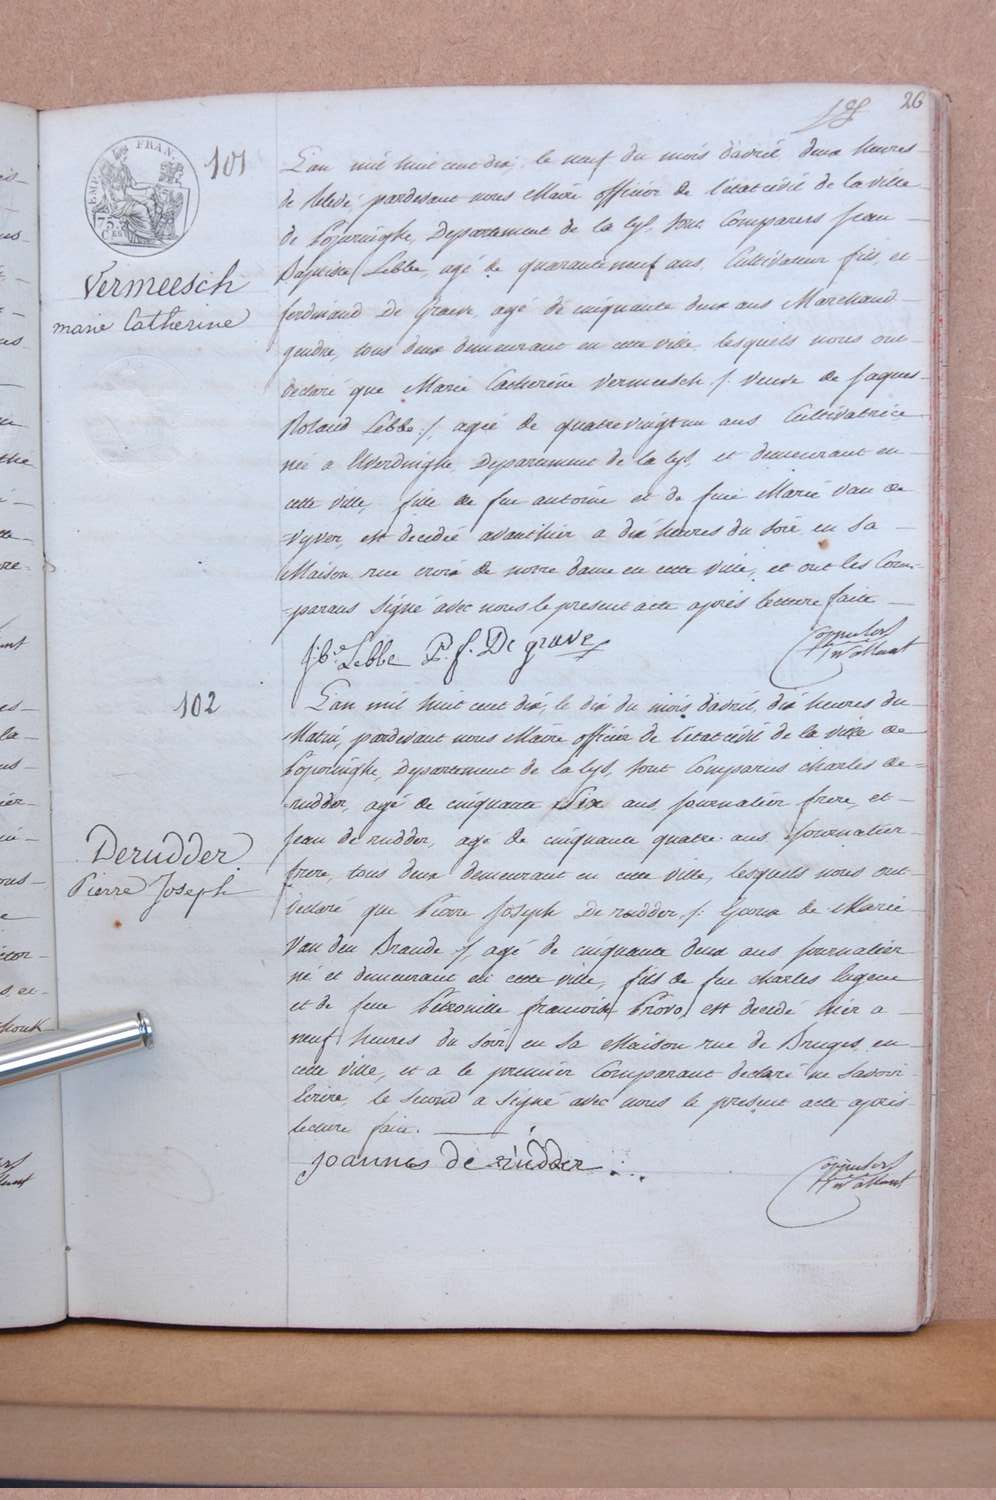 26
101
Vermeesch
marie Catherine
L'an mil huit cent dix, le neuf du mois d'avril, deux heures
de Relevé pardevant nous Maire officier de l'état civil de la ville
de Poperinghe, Departement de la Lys, sont Comparus Jean
Baptiste Lebbe, agé de quarante neuf ans, Cultivateur fils, et
ferdinand De Graeve, agé de cinquante deux ans Marchand
gendre, tous deux demeurant en cette ville, lesquels nous ont
declaré que Marie Catherine Vermeesch /: veuve de Jaques
Roland Lebbe :/, agée de quatrevingt un ans Cultivatrice
née a Elverdinghe, Departement de la Lys, et demeurant en
cette ville, fille de feu antoine et de feue Marie van de
vyver, est decedée avanthier a dix heures du soir en sa
Maison rue croix de notre dame en cette ville, et ont les Com=
=parans signé avec nous le present acte après lecture faite
j: b.te Lebbe P. f. De grave
102
Derudder
Pierre Joseph
L'an mil huit cent dix, le dix du mois d'avril, dix heures du
Matin, pardevant nous Maire officier de l'état civil de la ville de
Poperinghe, Departement de la Lys, sont Comparus charles de=
=rudder, agé de cinquante six ans, journalier frere, et
Jean de rudder, agé de cinquante quatre ans journalier
frere, tous deux demeurant en cette ville, lesquels nous ont
declaré que Pierre Joseph De rudder, /: Epoux de Marie
Van den Braude :/, agé de cinquante deux ans journalier
né et demeurant en cette ville, fils de feu charles Eugene
et de feue Petronille francoise Provo, est decedé hier a
neuf heures du soir en sa Maison rue de Bruges en
cette ville, et a le premier Comparant declaré ne savoir
Ecrire, le second a signé avec nous le present acte après
lecture faite.
joannes de rudder